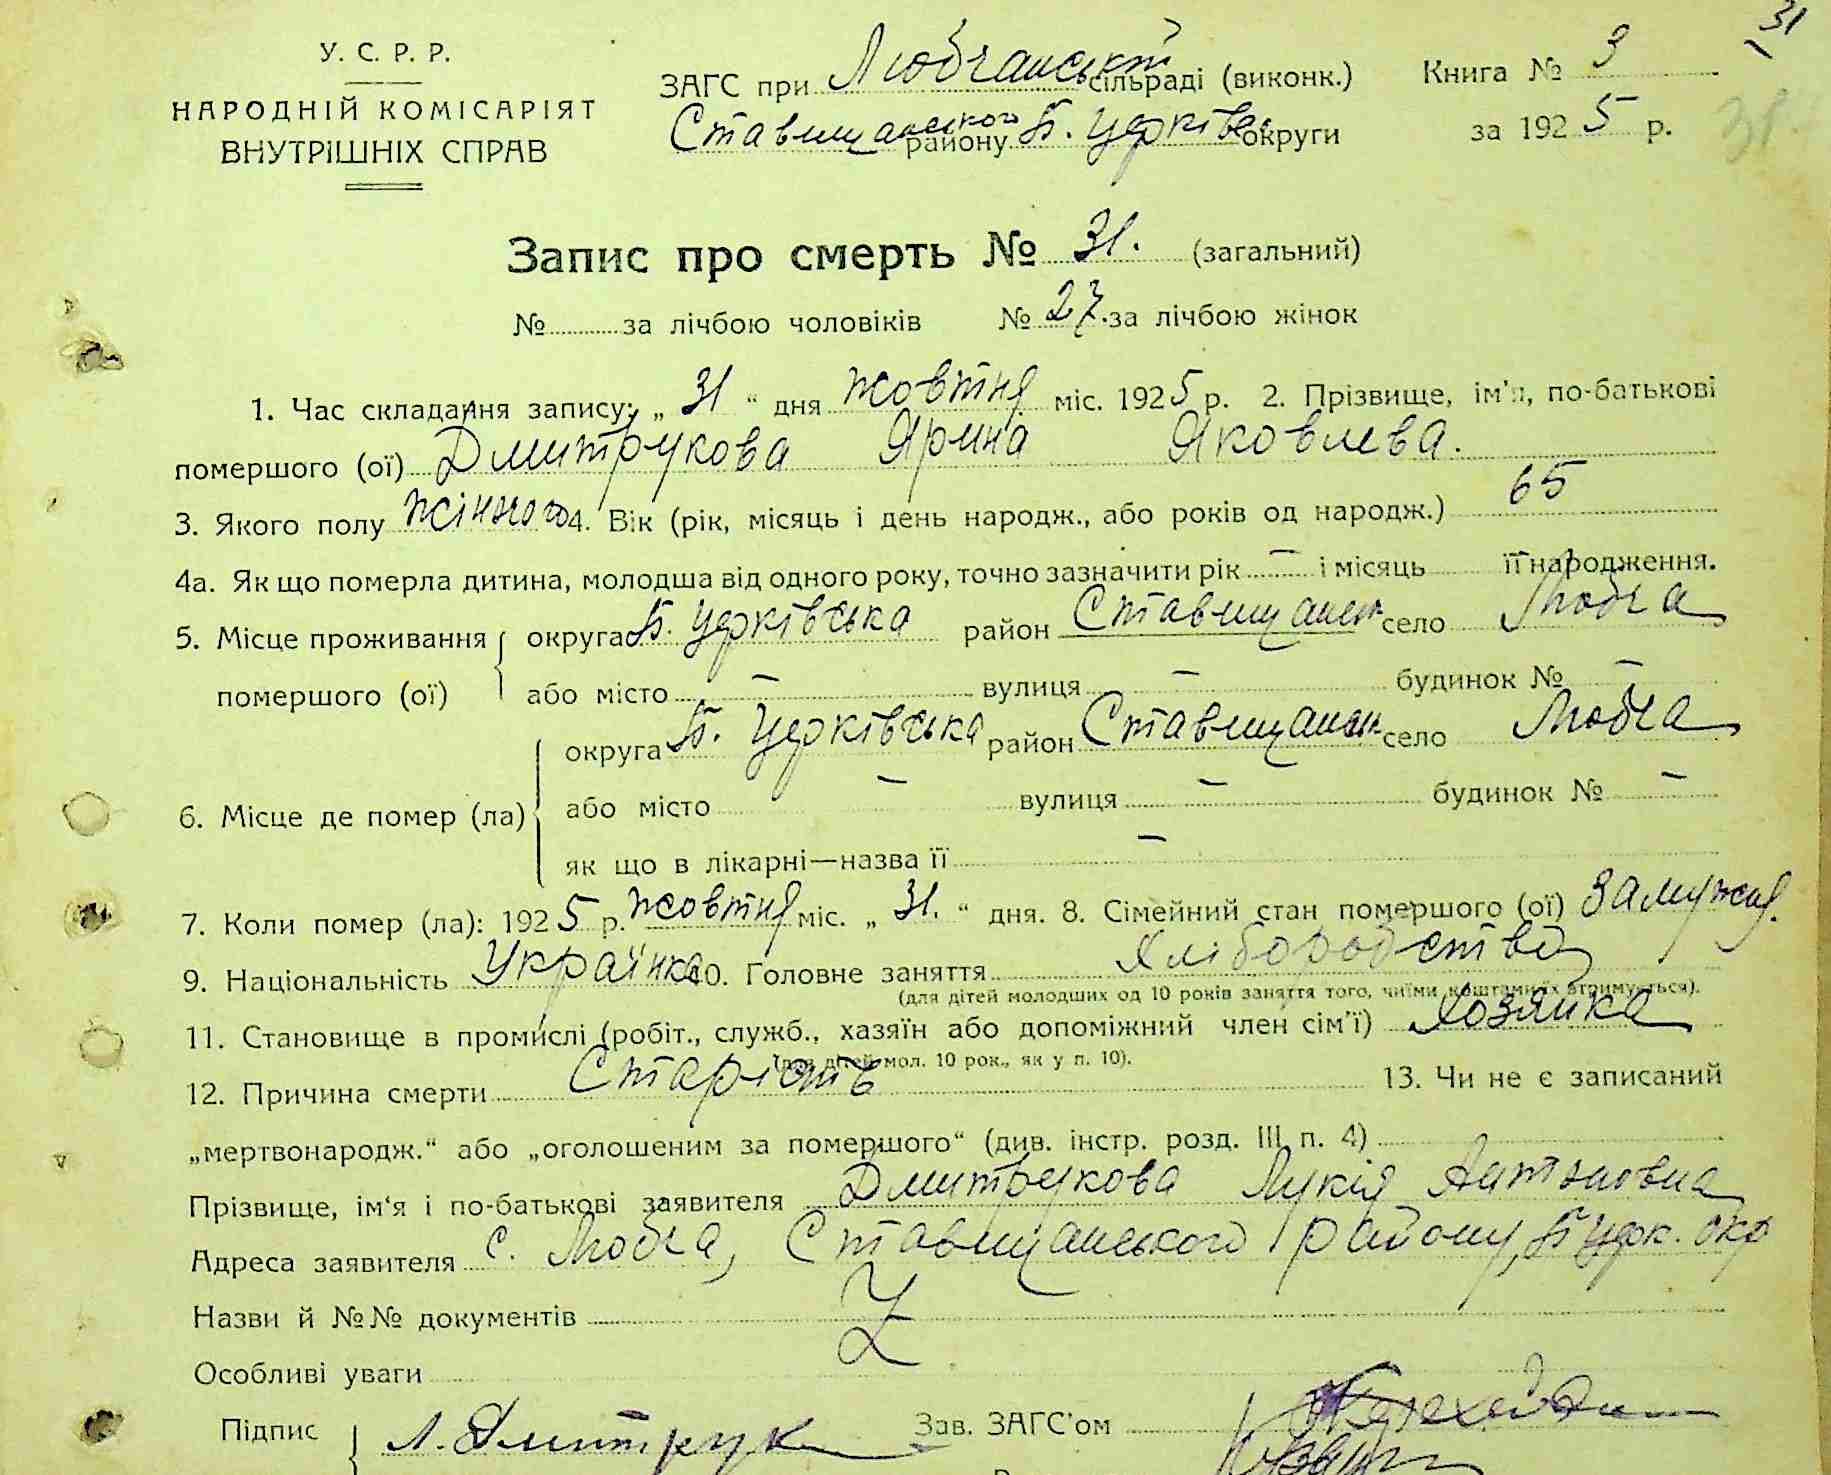 31
У. С. Р. Р.
НАРОДНІЙ КОМІСАРІЯТ
ВНУТРІШНІХ СПРАВ
ЗАГС при Любчанській сільраді (виконк.) Книга № 3
Ставищанського району Б. Церків. округи за 1925 р. 31
Запис про смерть № 31. (загальний)
№ за лічбою чоловіків № 27. за лічбою жінок
1. Час складання запису: „ 31 “ дня жовтня міс. 1925 р. 2. Прізвище, ім'я, по-батькові
помершого (ої) Дмитрукова Ярина Яковлева.
3. Якого полу жіночого 4. Вік (рік, місяць і день народж., або років од народж.) 65
4а. Як що померла дитина, молодша від одного року, точно зазначити рік — і місяць її народження.
5. Місце проживання округа Б. Церківська район Ставищанськ село Любча
помершого (ої) або місто — вулиця — будинок № —
округа Б. Церківська район Ставищанськ село Любча
6. Місце де помер (ла) або місто — вулиця — будинок № —
як що в лікарні—назва її —
7. Коли помер (ла): 1925 р. жовтня міс. „ 31. “ дня. 8. Сімейний стан помершого (ої) замужня.
9. Національність Українка 10. Головне заняття Хліборобство
(для дітей молодших од 10 років заняття того, чиїми коштами їх втримується).
11. Становище в промислі (робіт., служб., хазяїн або допоміжний член сім'ї) хозяйка
(для дітей мол. 10 рок., як у п. 10).
12. Причина смерти Старість 13. Чи не є записаний
„мертвонародж.“ або „оголошеним за помершого“ (див. інстр. розд. III п. 4)
Прізвище, ім'я і по-батькові заявителя Дмитрукова Лукія Антоновна
Адреса заявителя с. Любча, Ставищанського району, Б Церк. окр
Назви й №№ документів
Особливі уваги
Підпис Л. Дмитрук Зав. ЗАГС'ом